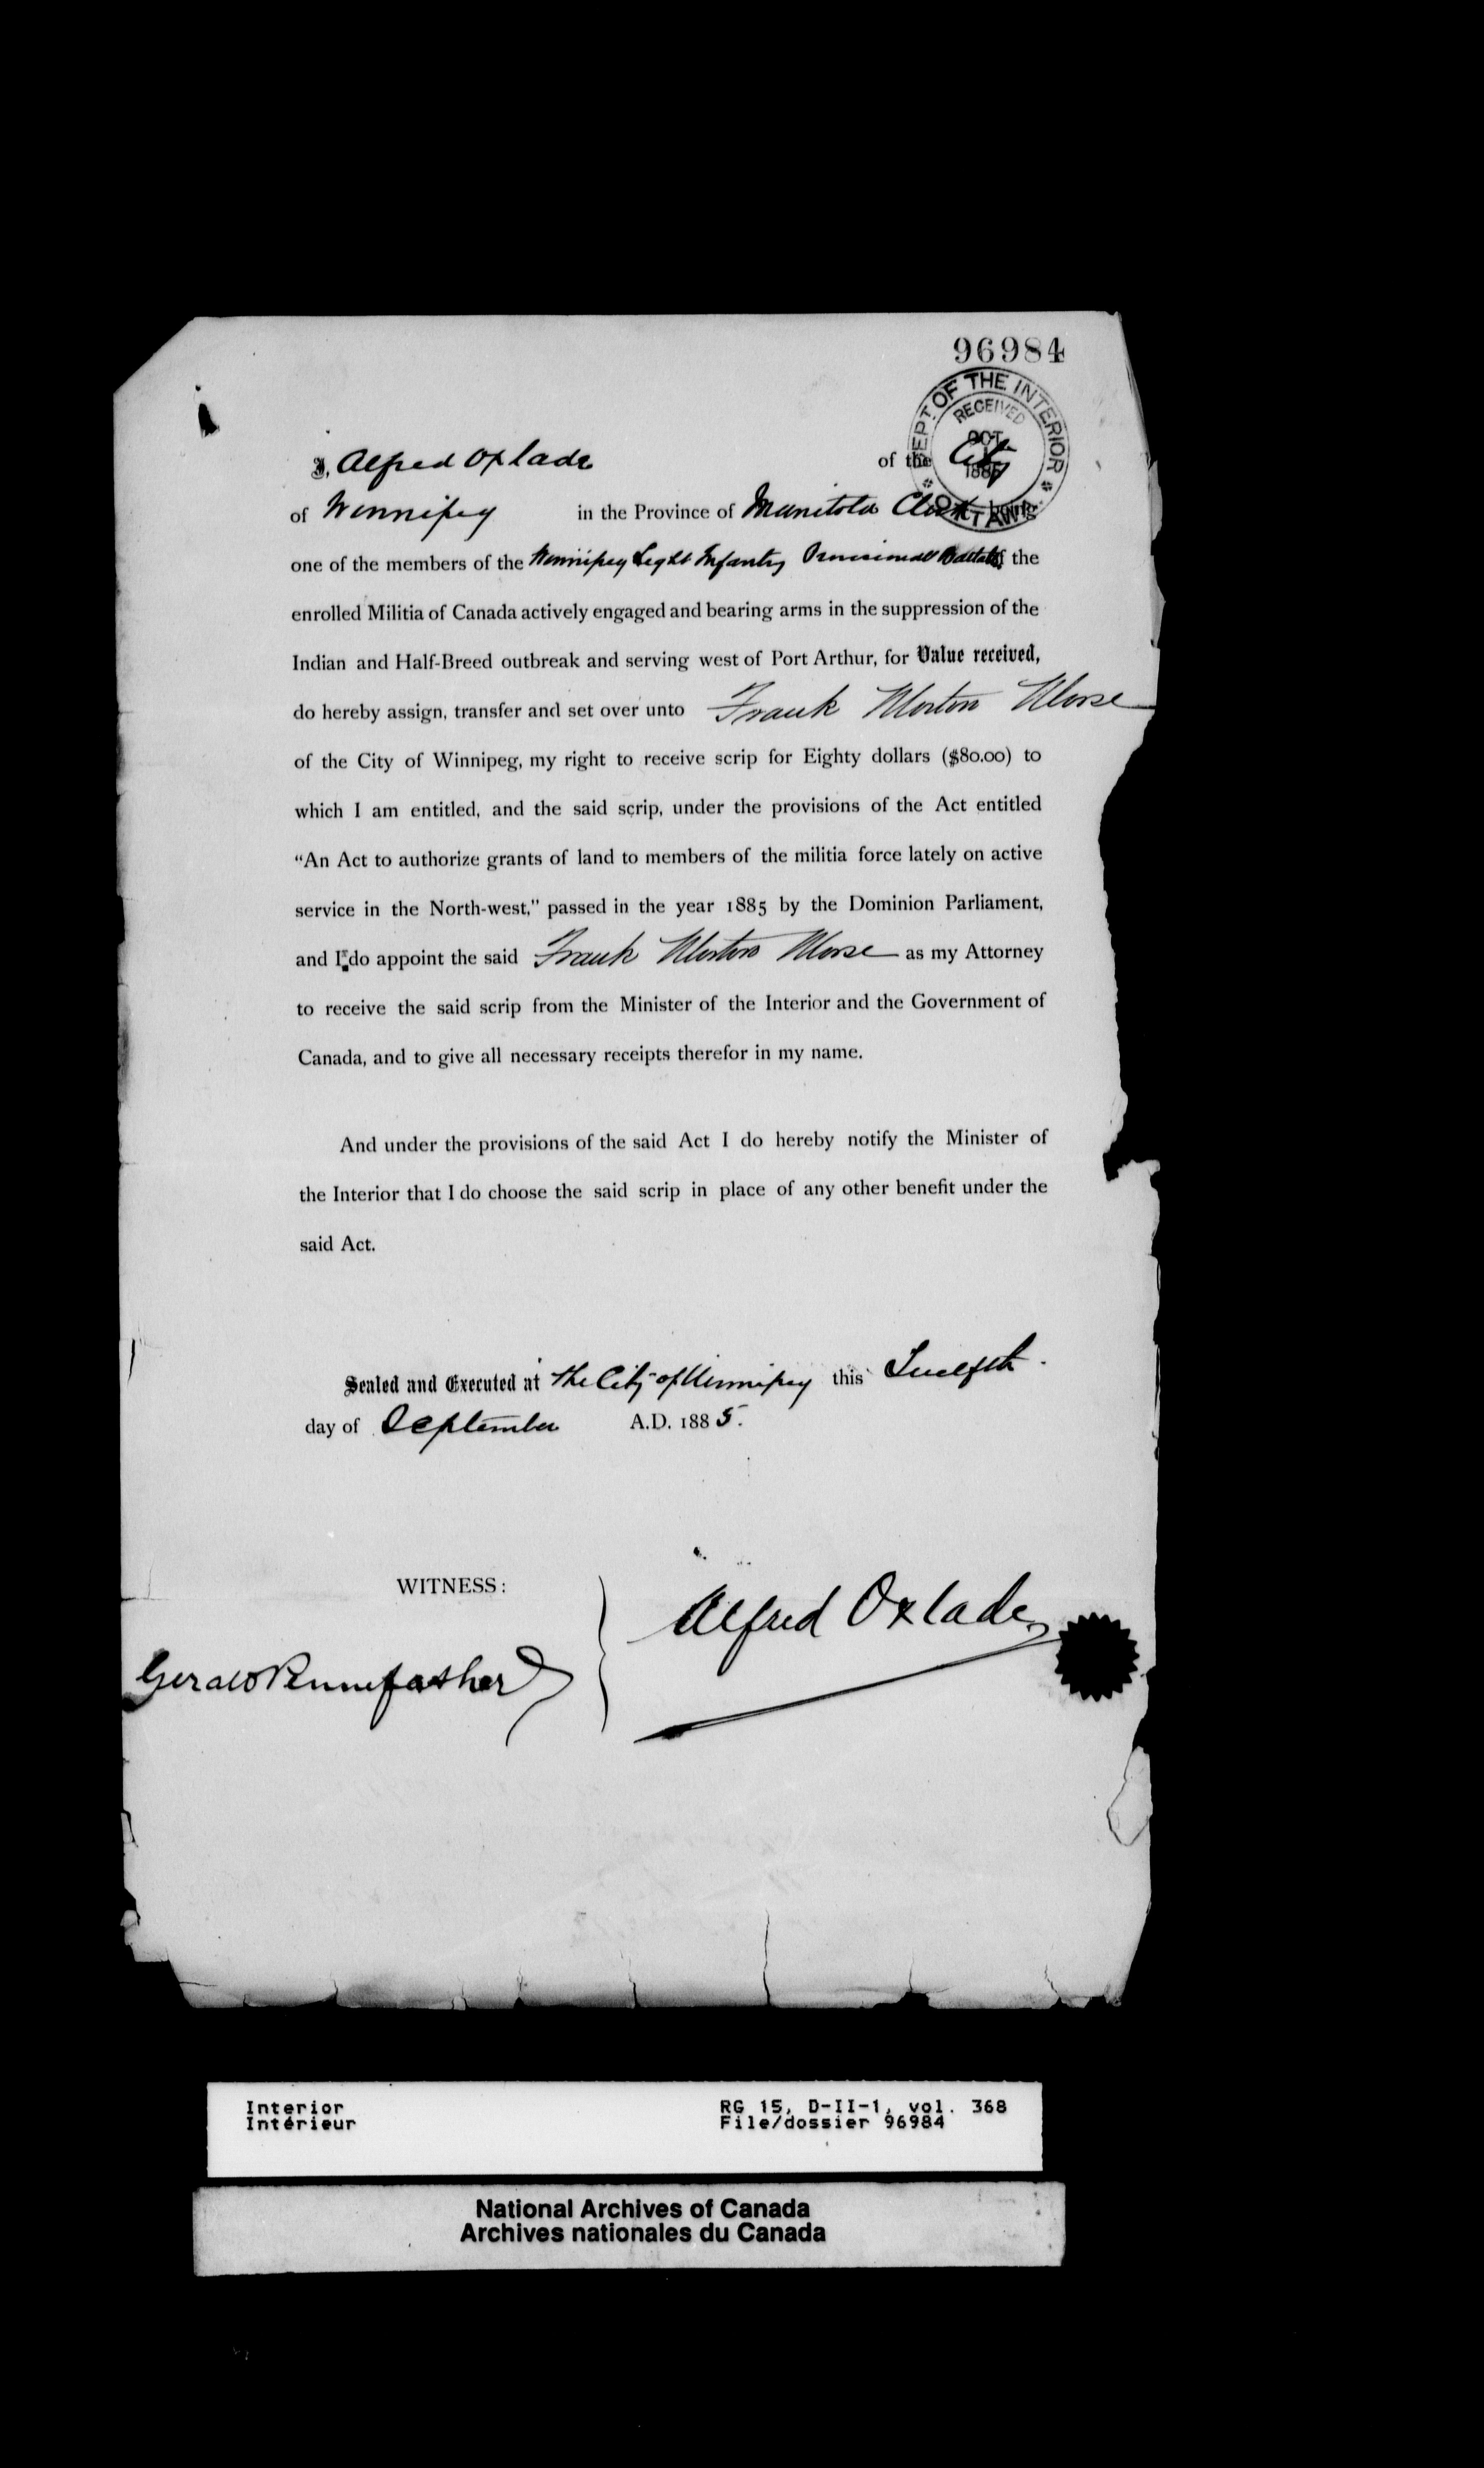 96984
DEPT. OF THE INTERIOR
RECEIVED
OCT
1885
OTTAWA
I, Alfred Oxlade of the City
of Winnipeg in the Province of Manitoba Clerk being
one of the members of the Winnipeg Light Infantry Provisional Battal of the
enrolled Militia of Canada actively engaged and bearing arms in the suppression of the
Indian and Half-Breed outbreak and serving west of Port Arthur, for Value received,
do hereby assign, transfer and set over unto Frank Morton Morse
of the City of Winnipeg, my right to receive scrip for Eighty dollars ($80.00) to
which I am entitled, and the said scrip, under the provisions of the Act entitled
“An Act to authorize grants of land to members of the militia force lately on active
service in the North-west,” passed in the year 1885 by the Dominion Parliament,
and I do appoint the said Frank Morton Morse as my Attorney
to receive the said scrip from the Minister of the Interior and the Government of
Canada, and to give all necessary receipts therefor in my name.
And under the provisions of the said Act I do hereby notify the Minister of
the Interior that I do choose the said scrip in place of any other benefit under the
said Act.
Sealed and Executed at the City of Winnipeg this Twelfth
day of September A.D. 1885.
WITNESS:
Alfred Oxlade
Gerald Pennefather
Interior RG 15, D-II-1, vol. 368
Intérieur File/dossier 96984
National Archives of Canada
Archives nationales du Canada